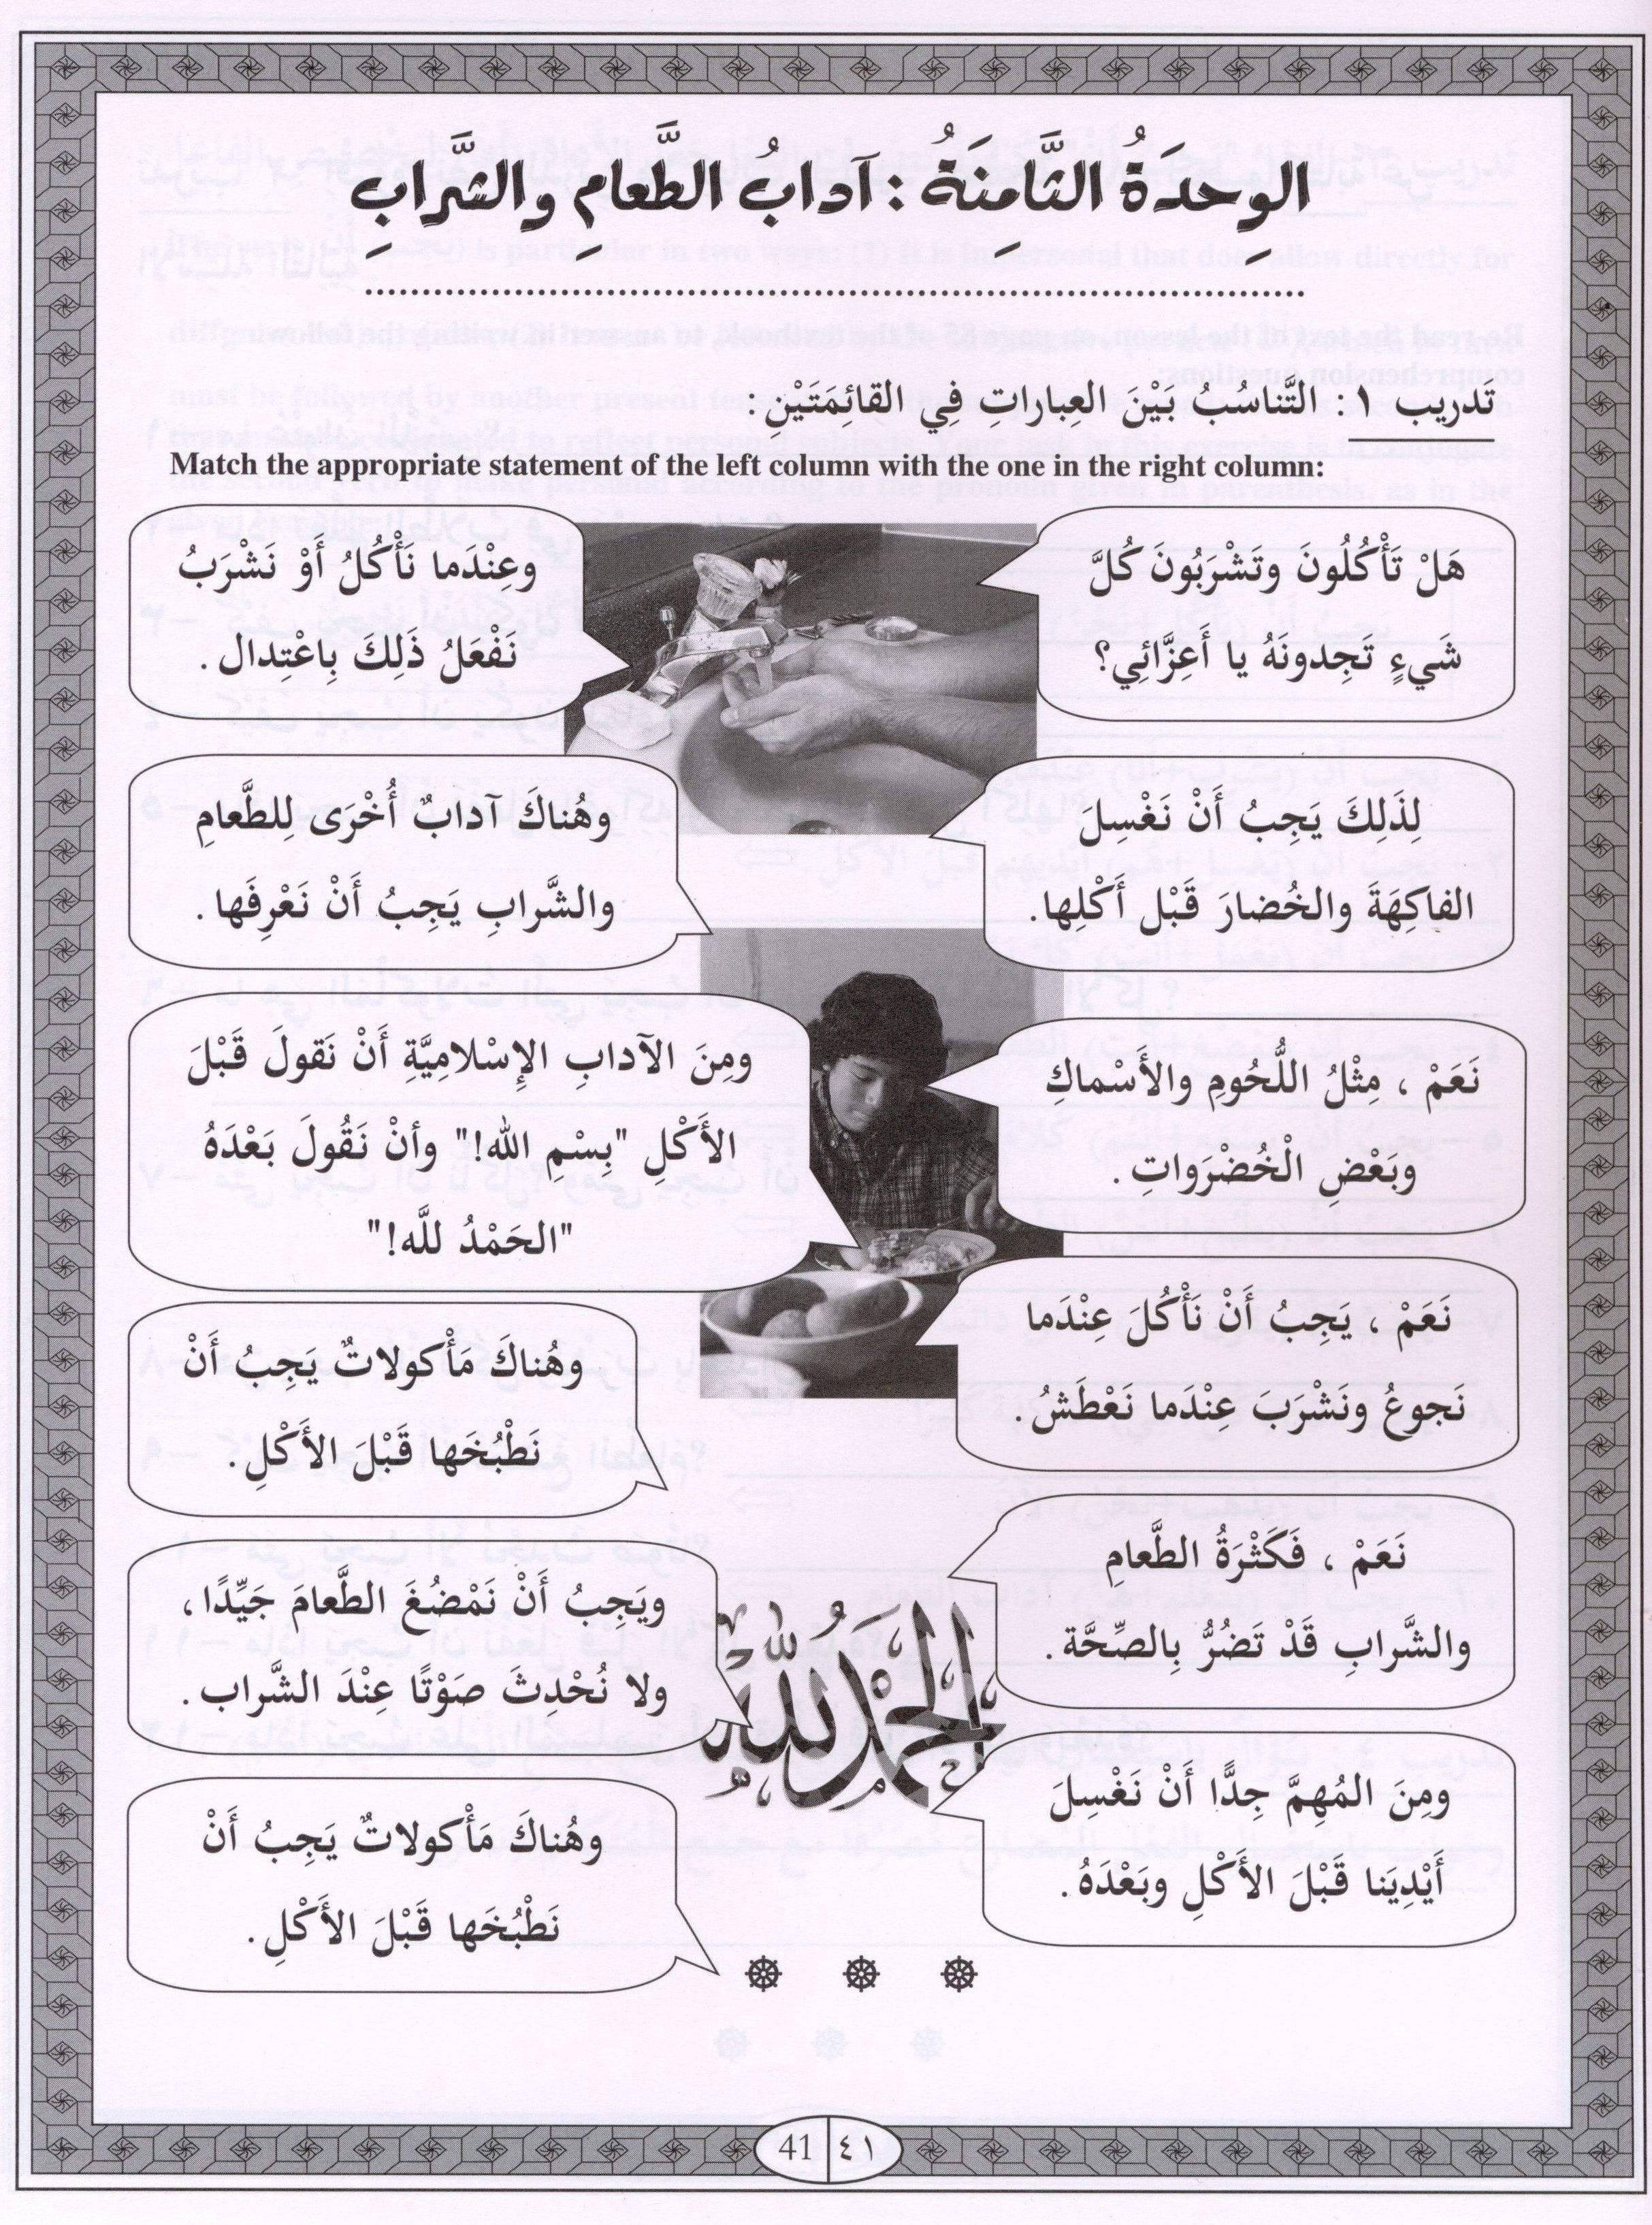 الوِحدَةُ الثَّامِنَةُ : آدابُ الطَّعامِ والشَّرابِ
تَدريب ١ : التَّناسُبُ بَيْنَ العِباراتِ فِي القائِمَتَيْنِ :
Match the appropriate statement of the left column with the one in the right column:
هَلْ تَأْكُلُونَ وتَشْرَبُونَ كُلَّ
شَيءٍ تَجِدونَهُ يا أَعِزَّائِي؟
وعِنْدَما نَأْكُلُ أَوْ نَشْرَبُ
نَفْعَلُ ذَلِكَ بِاعْتِدال .
لِذَلِكَ يَجِبُ أَنْ نَغْسِلَ
الفاكِهَةَ والخُضارَ قَبْل أَكْلِها.
وهُناكَ آدابٌ أُخْرَى لِلطَّعامِ
والشَّرابِ يَجِبُ أَنْ نَعْرِفَها .
نَعَمْ ، مِثْلُ اللُّحُومِ والأَسْماكِ
وبَعْضِ الْخُضْرَواتِ .
ومِنَ الآدابِ الإِسْلامِيَّةِ أَنْ نَقولَ قَبْلَ
الأَكْلِ "بِسْمِ الله!" وأنْ نَقُولَ بَعْدَهُ
"الحَمْدُ للَّه!"
نَعَمْ ، يَجِبُ أَنْ نَأْكُلَ عِنْدَما
نَجوعُ ونَشْرَبَ عِنْدَما نَعْطَشُ.
وهُناكَ مَأْكولاتٌ يَجِبُ أَنْ
نَطْبُخَها قَبْلَ الأَكْلِ.
نَعَمْ ، فَكَثْرَةُ الطَّعامِ
والشَّرابِ قَدْ تَضُرُّ بِالصِّحَّة .
ويَجِبُ أَنْ نَمْضُغَ الطَّعامَ جَيِّدًا ،
ولا نُحْدِثَ صَوْتًا عِنْدَ الشَّراب .
الحمد لله
ومِنَ المُهِمَّ جِدًّا أَنْ نَغْسِلَ
أَيْدِيَنا قَبْلَ الأَكْلِ وبَعْدَهُ .
وهُناكَ مَأْكولاتٌ يَجِبُ أَنْ
نَطْبُخَها قَبْلَ الأَكْلِ .
41 ٤١